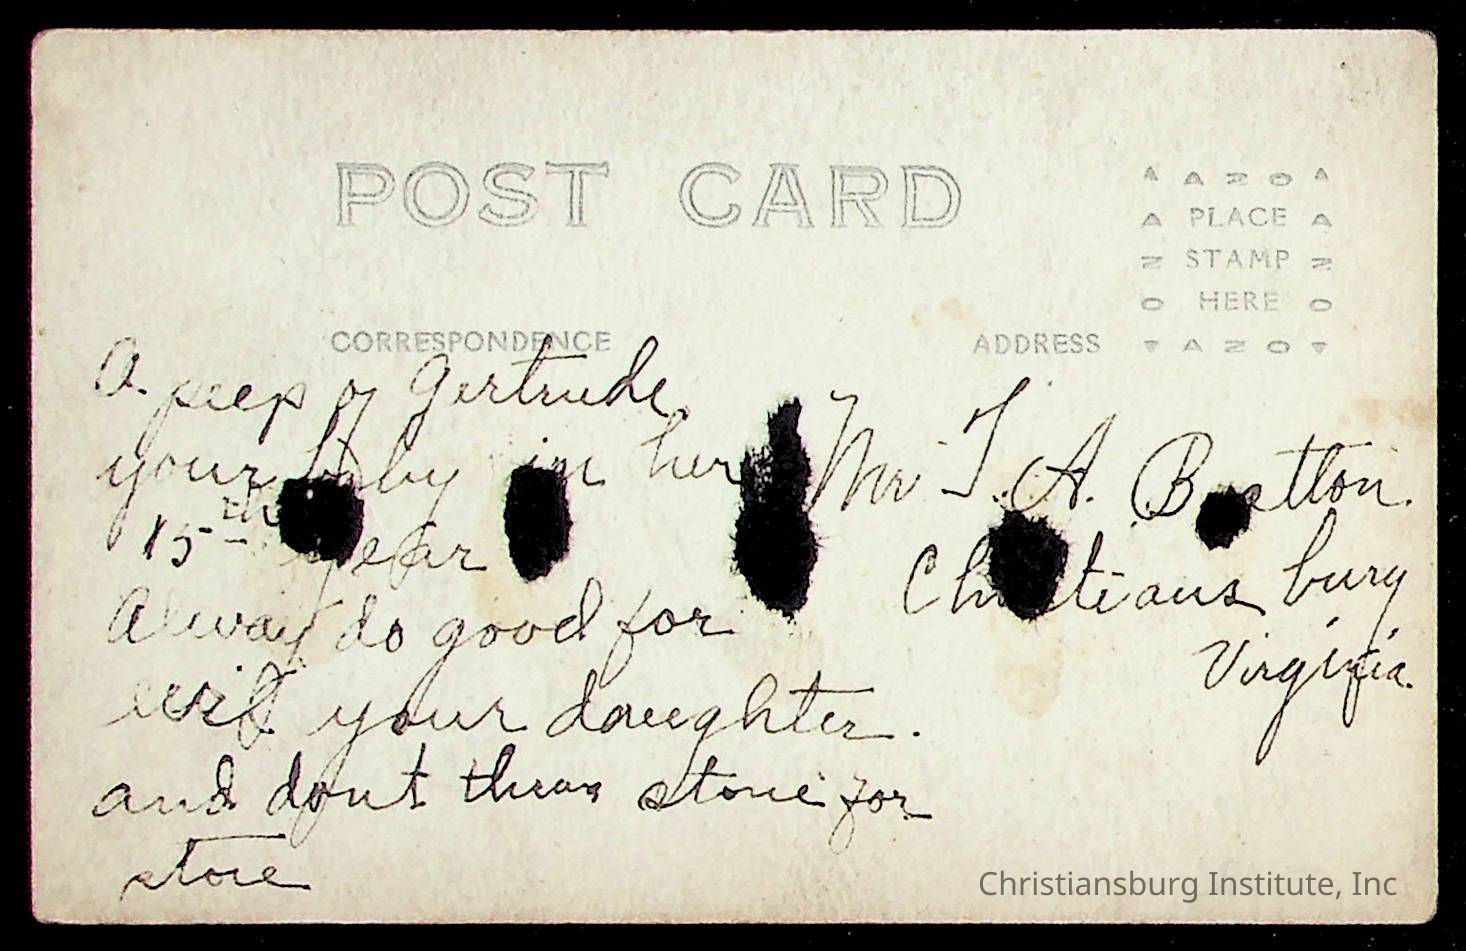 POST CARD
AZO
PLACE
STAMP
HERE
AZO
CORRESPONDENCE
ADDRESS
A. peep of Gertrude
your baby in her
15th year
Alway do good for
evil your daughter.
and dont throw stone for
stone
Mr T. A. Bratton.
Christians burg
Virginia.
Christiansburg Institute, Inc